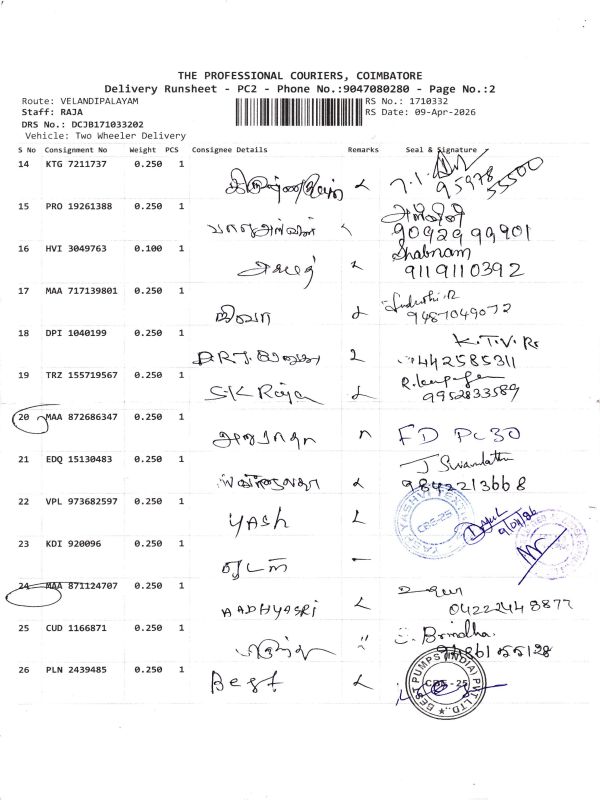 THE PROFESSIONAL COURIERS, COIMBATORE
Delivery Runsheet - PC2 - Phone No.:9047080280 - Page No.:2
Route: VELANDIPALAYAM RS No.: 1710332
Staff: RAJA RS Date: 09-Apr-2026
DRS No.: DCJB171033202
Vehicle: Two Wheeler Delivery
S No Consignment No Weight PCS Consignee Details Remarks Seal & Signature
14 KTG 7211737 0.250 1
95978
55500
15 PRO 19261388 0.250 1
90929 99901
16 HVI 3049763 0.100 1 Shabnam
9119110392
17 MAA 717139801 0.250 1
சிவா 9487049072
18 DPI 1040199 0.250 1 K.T.V. Rr
D.R.T. 442585311
19 TRZ 155719567 0.250 1
SK Raja 9952833589
20 MAA 872686347 0.250 1
அனுராதா FD PC30
21 EDQ 15130483 0.250 1
9842213668
22 VPL 973682597 0.250 1
YASH CBE-25
23 KDI 920096 0.250 1
24 MAA 871124707 0.250 1
AADHYASRI 04222448877
25 CUD 1166871 0.250 1 Brindha
26 PLN 2439485 0.250 1
Best BEST PUMPS (INDIA) PVT LTD. CBE-25